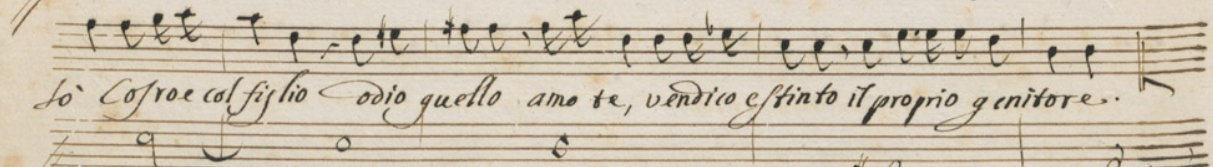 sò Cosroe col figlio odio quello amo te, vendico estinto il proprio genitore.